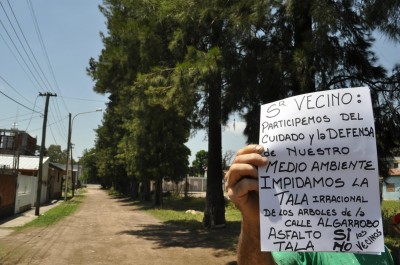 Sr VECINO:
PARTICIPEMOS DEL
CUIDADO y la DEFENSA
de NUESTRO
MEDIO AMBIENTE
IMPIDAMOS LA
TALA IRRACIONAL
DE LOS ARBOLES de la
CALLE ALGARROBO
ASFALTO SI los
TALA NO VECINOS